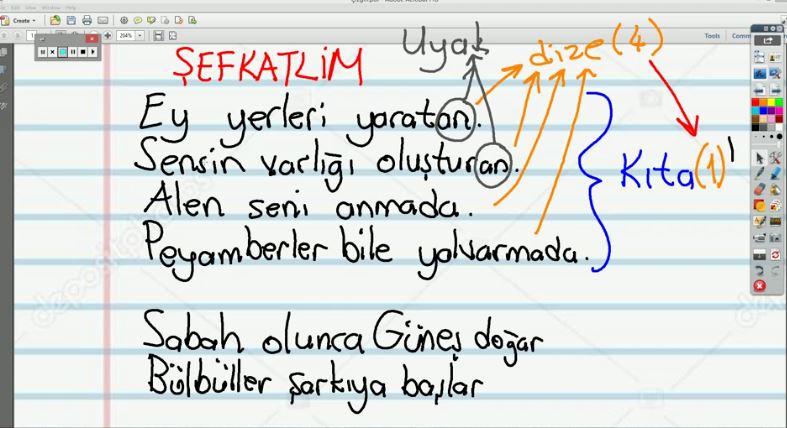 Create
204%
Tools
Uyak dize (4)
ŞEFKATLİM
Ey yerleri yaratan.
Sensin varlığı oluşturan.
Kıta (1)
Alen seni anmada.
Peyamberler bile yalvarmada.
Sabah olunca Güneş doğar
Bülbüller şarkıya başlar